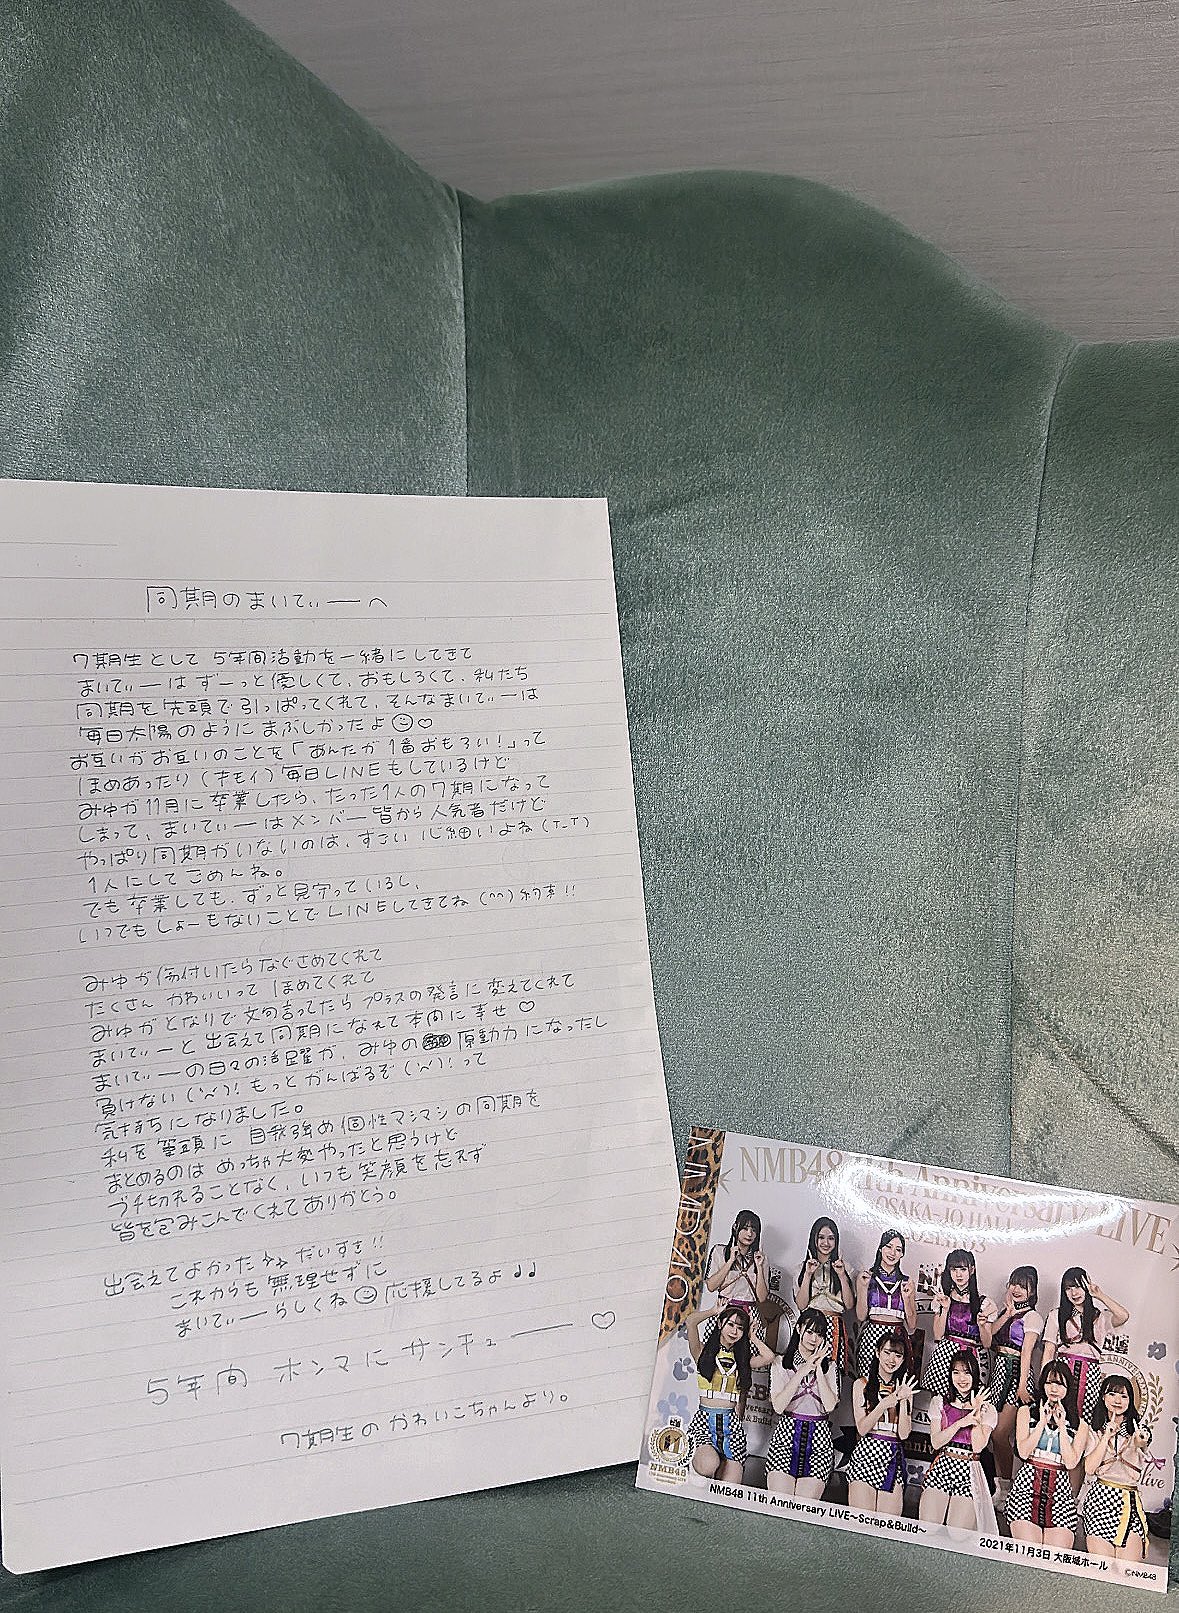 同期のまいてぃーへ
7期生として 5年間活動を一緒にしてきて
まいてぃーは ずーっと優しくて、おもしろくて、私たち
同期を先頭で引っぱってくれて、そんなまいてぃーは
毎日太陽のように まぶしかったよ☺♡
お互いがお互いのことを「あんたが1番おもろい!」って
ほめあったり(キモイ)毎日LINEもしているけど
みゆが11月に卒業したら、たった1人の7期になって
しまって、まいてぃーはメンバー皆から人気者だけど
やっぱり同期がいないのは、すごい心細いよね(T_T)
1人にしてごめんね。
でも卒業しても、ずっと見守っているし、
いつでもしょーもないことでLINEしてきてね(^^)約束!!
みゆが傷付いたらなぐさめてくれて
たくさん かわいいって ほめてくれて
みゆがとなりで文句言ってたらプラスの発言に変えてくれて
まいてぃーと出会えて同期になれて本間に幸せ♡
まいてぃーの日々の活躍が、みゆの 原動力になったし
負けない(`^´)!もっとがんばるぞ(`^´)!って
気持ちになりました。
私を筆頭に 自我強め個性マシマシの同期を
まとめるのは めっちゃ大変やったと思うけど
ブチ切れることなく、いつも笑顔を忘れず
皆を包みこんでくれてありがとう。
出会えてよかった だいすき!!
これからも無理せずに
まいてぃーらしくね☺応援してるよ♩♩
5年間 ホンマに サンキューー♡
7期生のかわいこちゃんより。
NMB48 11th Anniversary LIVE
OSAKA-JO HALL
NMB48
NMB48 11th Anniversary LIVE~Scrap&Build~
2021年11月3日 大阪城ホール
©NMB48